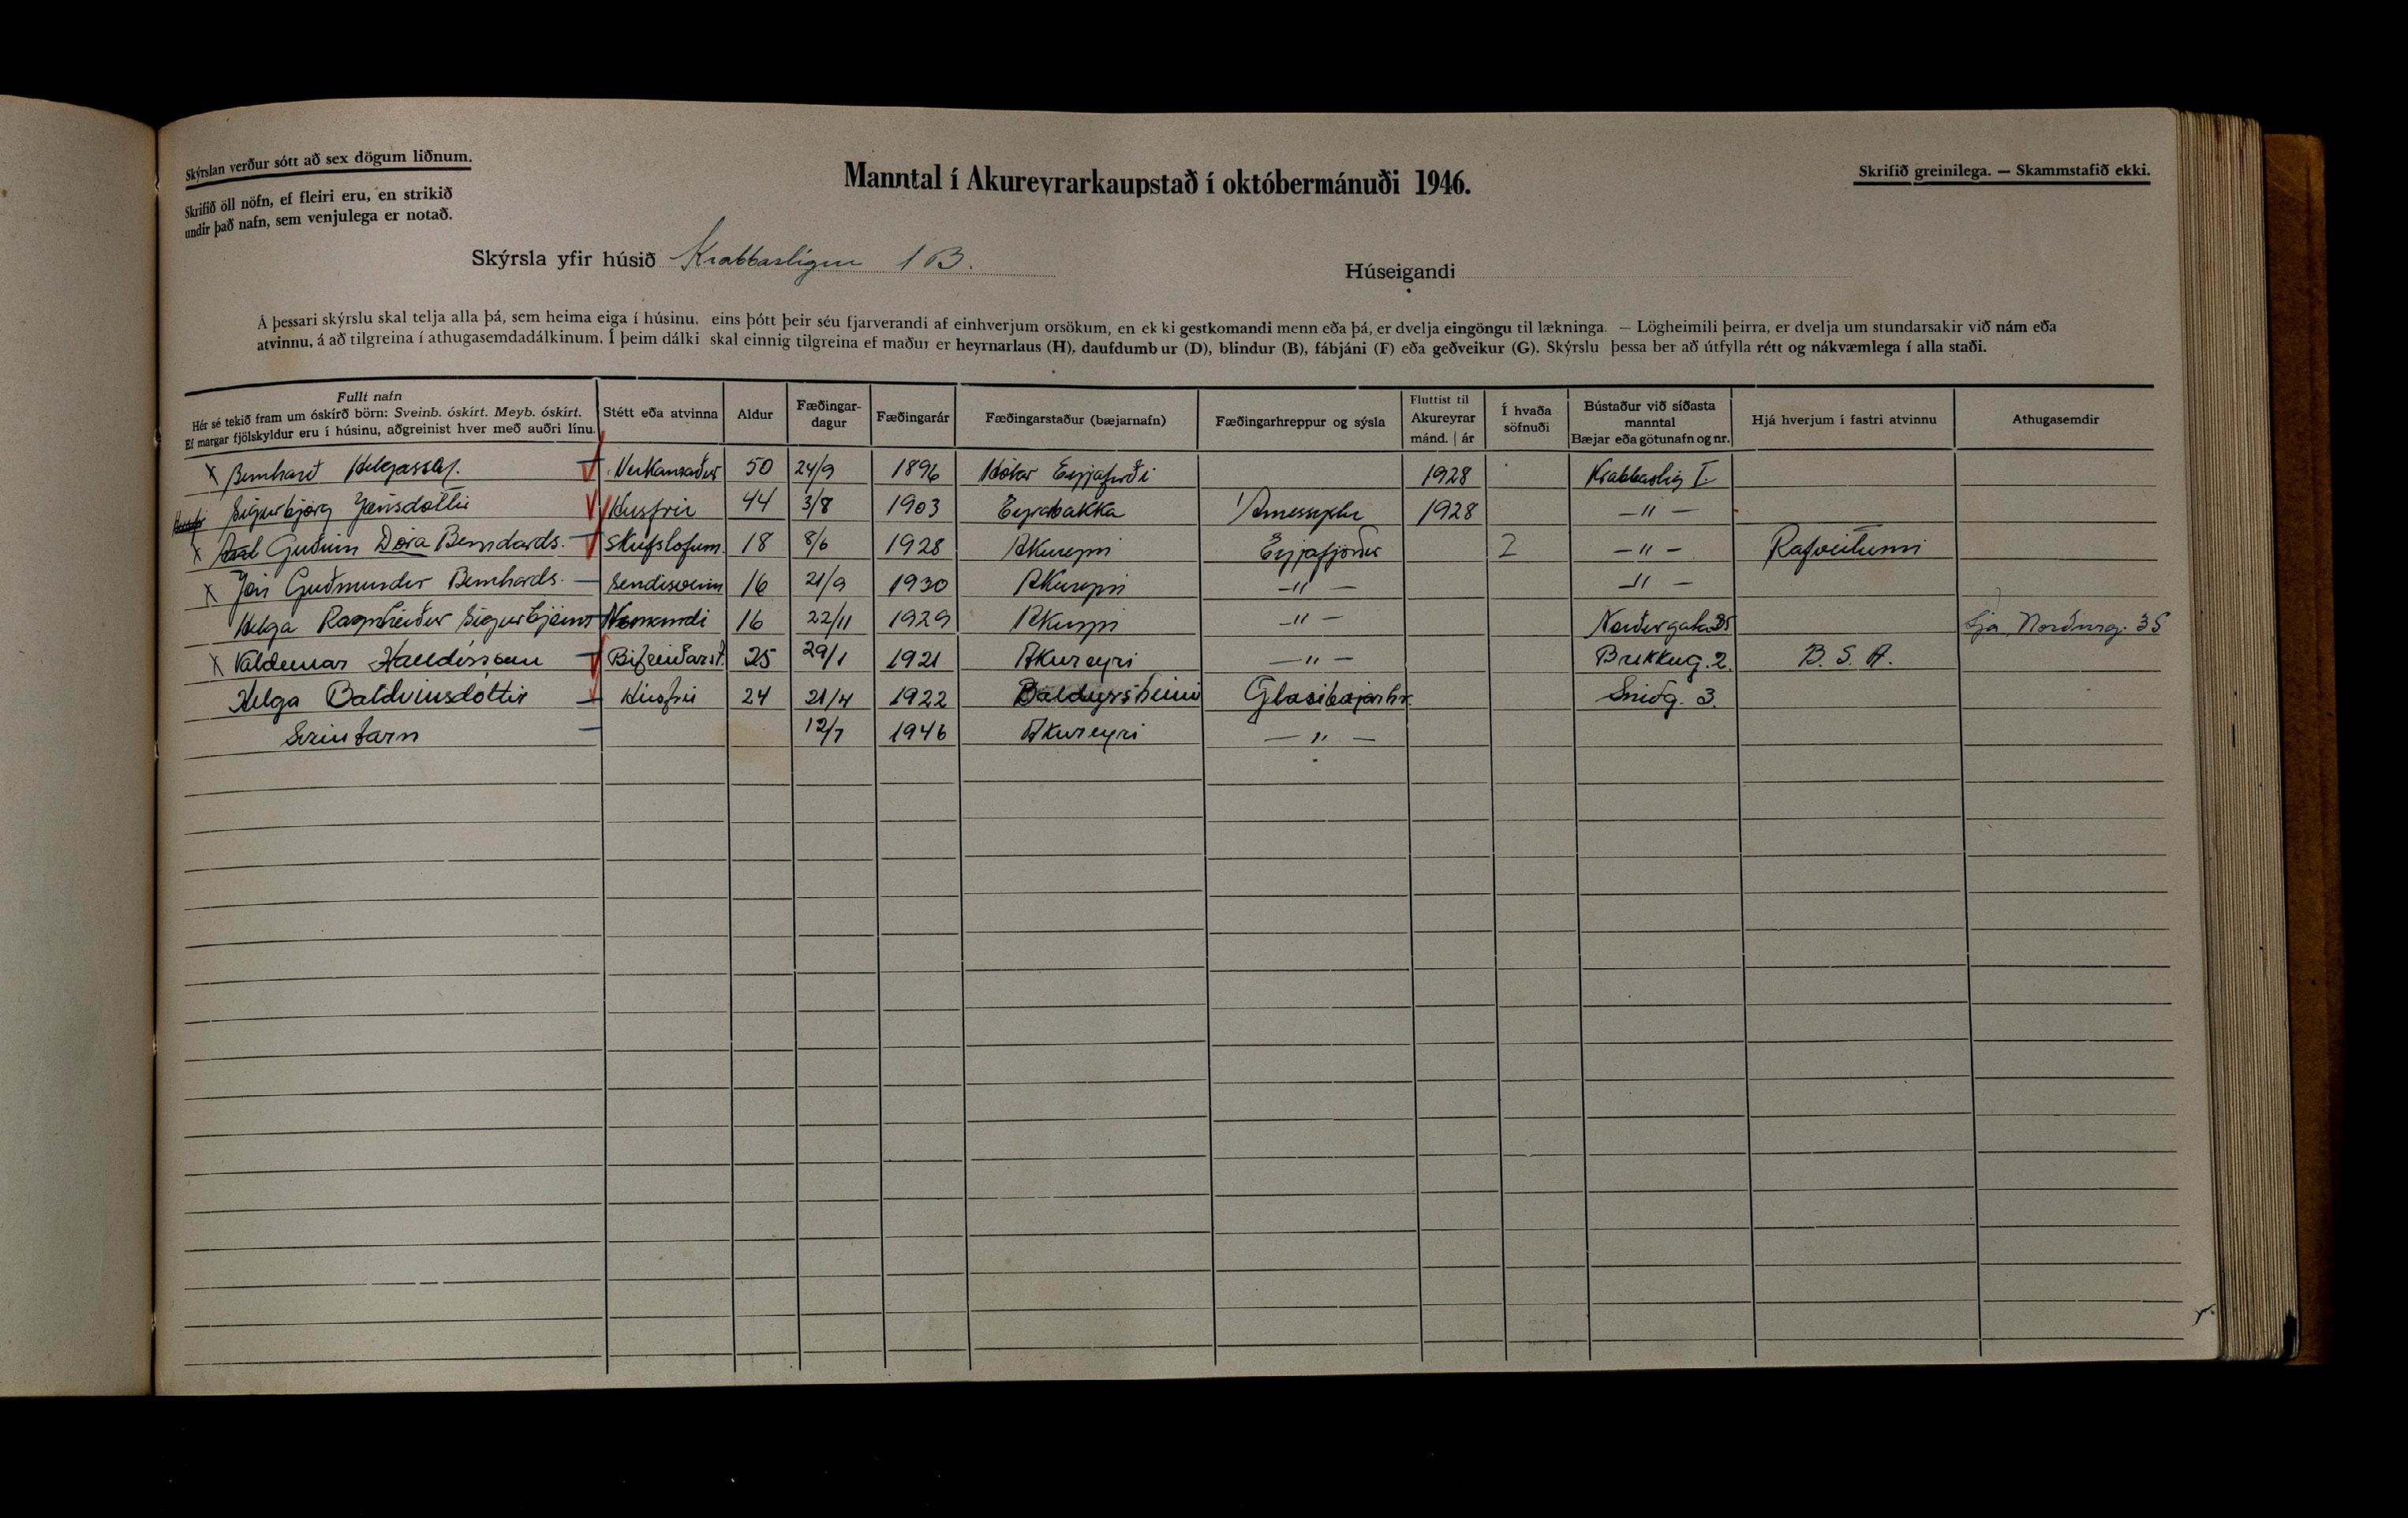 Skýrslan verður sótt að sex dögum liðnum.
Skrifið öll nöfn, ef fleiri eru, en strikið
undir það nafn, sem venjulega er notað.
Manntal í Akureyrarkaupstað í októbermánuði 1946.
Skrifið greinilega. — Skammstafið ekki.
Skýrsla yfir húsið Krabbastígur 1 B.
Húseigandi
Á þessari skýrslu skal telja alla þá, sem heima eiga í húsinu, eins þótt þeir séu fjarverandi af einhverjum orsökum, en ekki gestkomandi menn eða þá, er dvelja eingöngu til lækninga. — Lögheimili þeirra, er dvelja um stundarsakir við nám eða
atvinnu, á að tilgreina í athugasemdadálkinum. Í þeim dálki skal einnig tilgreina ef maður er heyrnarlaus (H), daufdumbur (D), blindur (B), fábjáni (F) eða geðveikur (G). Skýrslu þessa ber að útfylla rétt og nákvæmlega í alla staði.
Fullt nafn Hér sé tekið fram um óskírð börn: Sveinb. óskírt. Meyb. óskírt. Ef margar fjölskyldur eru í húsinu, aðgreinist hver með auðri línu. Stétt eða atvinna Aldur Fæðingardagur Fæðingarár Fæðingarstaður (bæjarnafn) Fæðingarhreppur og sýsla Fluttist til Akureyrar mánd. | ár Í hvaða söfnuði Bústaður við síðasta manntal Bæjar eða götunafn og nr. Hjá hverjum í fastri atvinnu Athugasemdir
x Bernharð Helgason Verkamaður 50 24/9 1896 Hólar Eyjafirði 1928 Krabbastíg I.
Sigurbjörg Jónsdóttir Húsfrú 44 3/8 1903 Eyrabakka Árnessýslu 1928 — " —
x Guðrún Dóra Berndards. Skrifstofum. 18 8/6 1928 Akureyri Eyjafjörður 2 — " — Rafveitunni
x Jón Guðmundur Bernhards. Sendisveinn 16 21/9 1930 Akureyri — " — — " —
Helga Ragnheiður Sigurbjörns Nemandi 16 22/11 1929 Akureyri — " — Norðurgata 35 Sjá Norðurg. 35
x Valdemar Halldórsson Bifreiðarst. 25 29/1 1921 Akureyri — " — Brekkug. 2. B. S. A.
Helga Baldvinsdóttir Húsfrú 24 21/4 1922 Baldursheimi Glæsibæjarhr. Sniðg. 3.
Sveinbarn 12/7 1946 Akureyri — " —